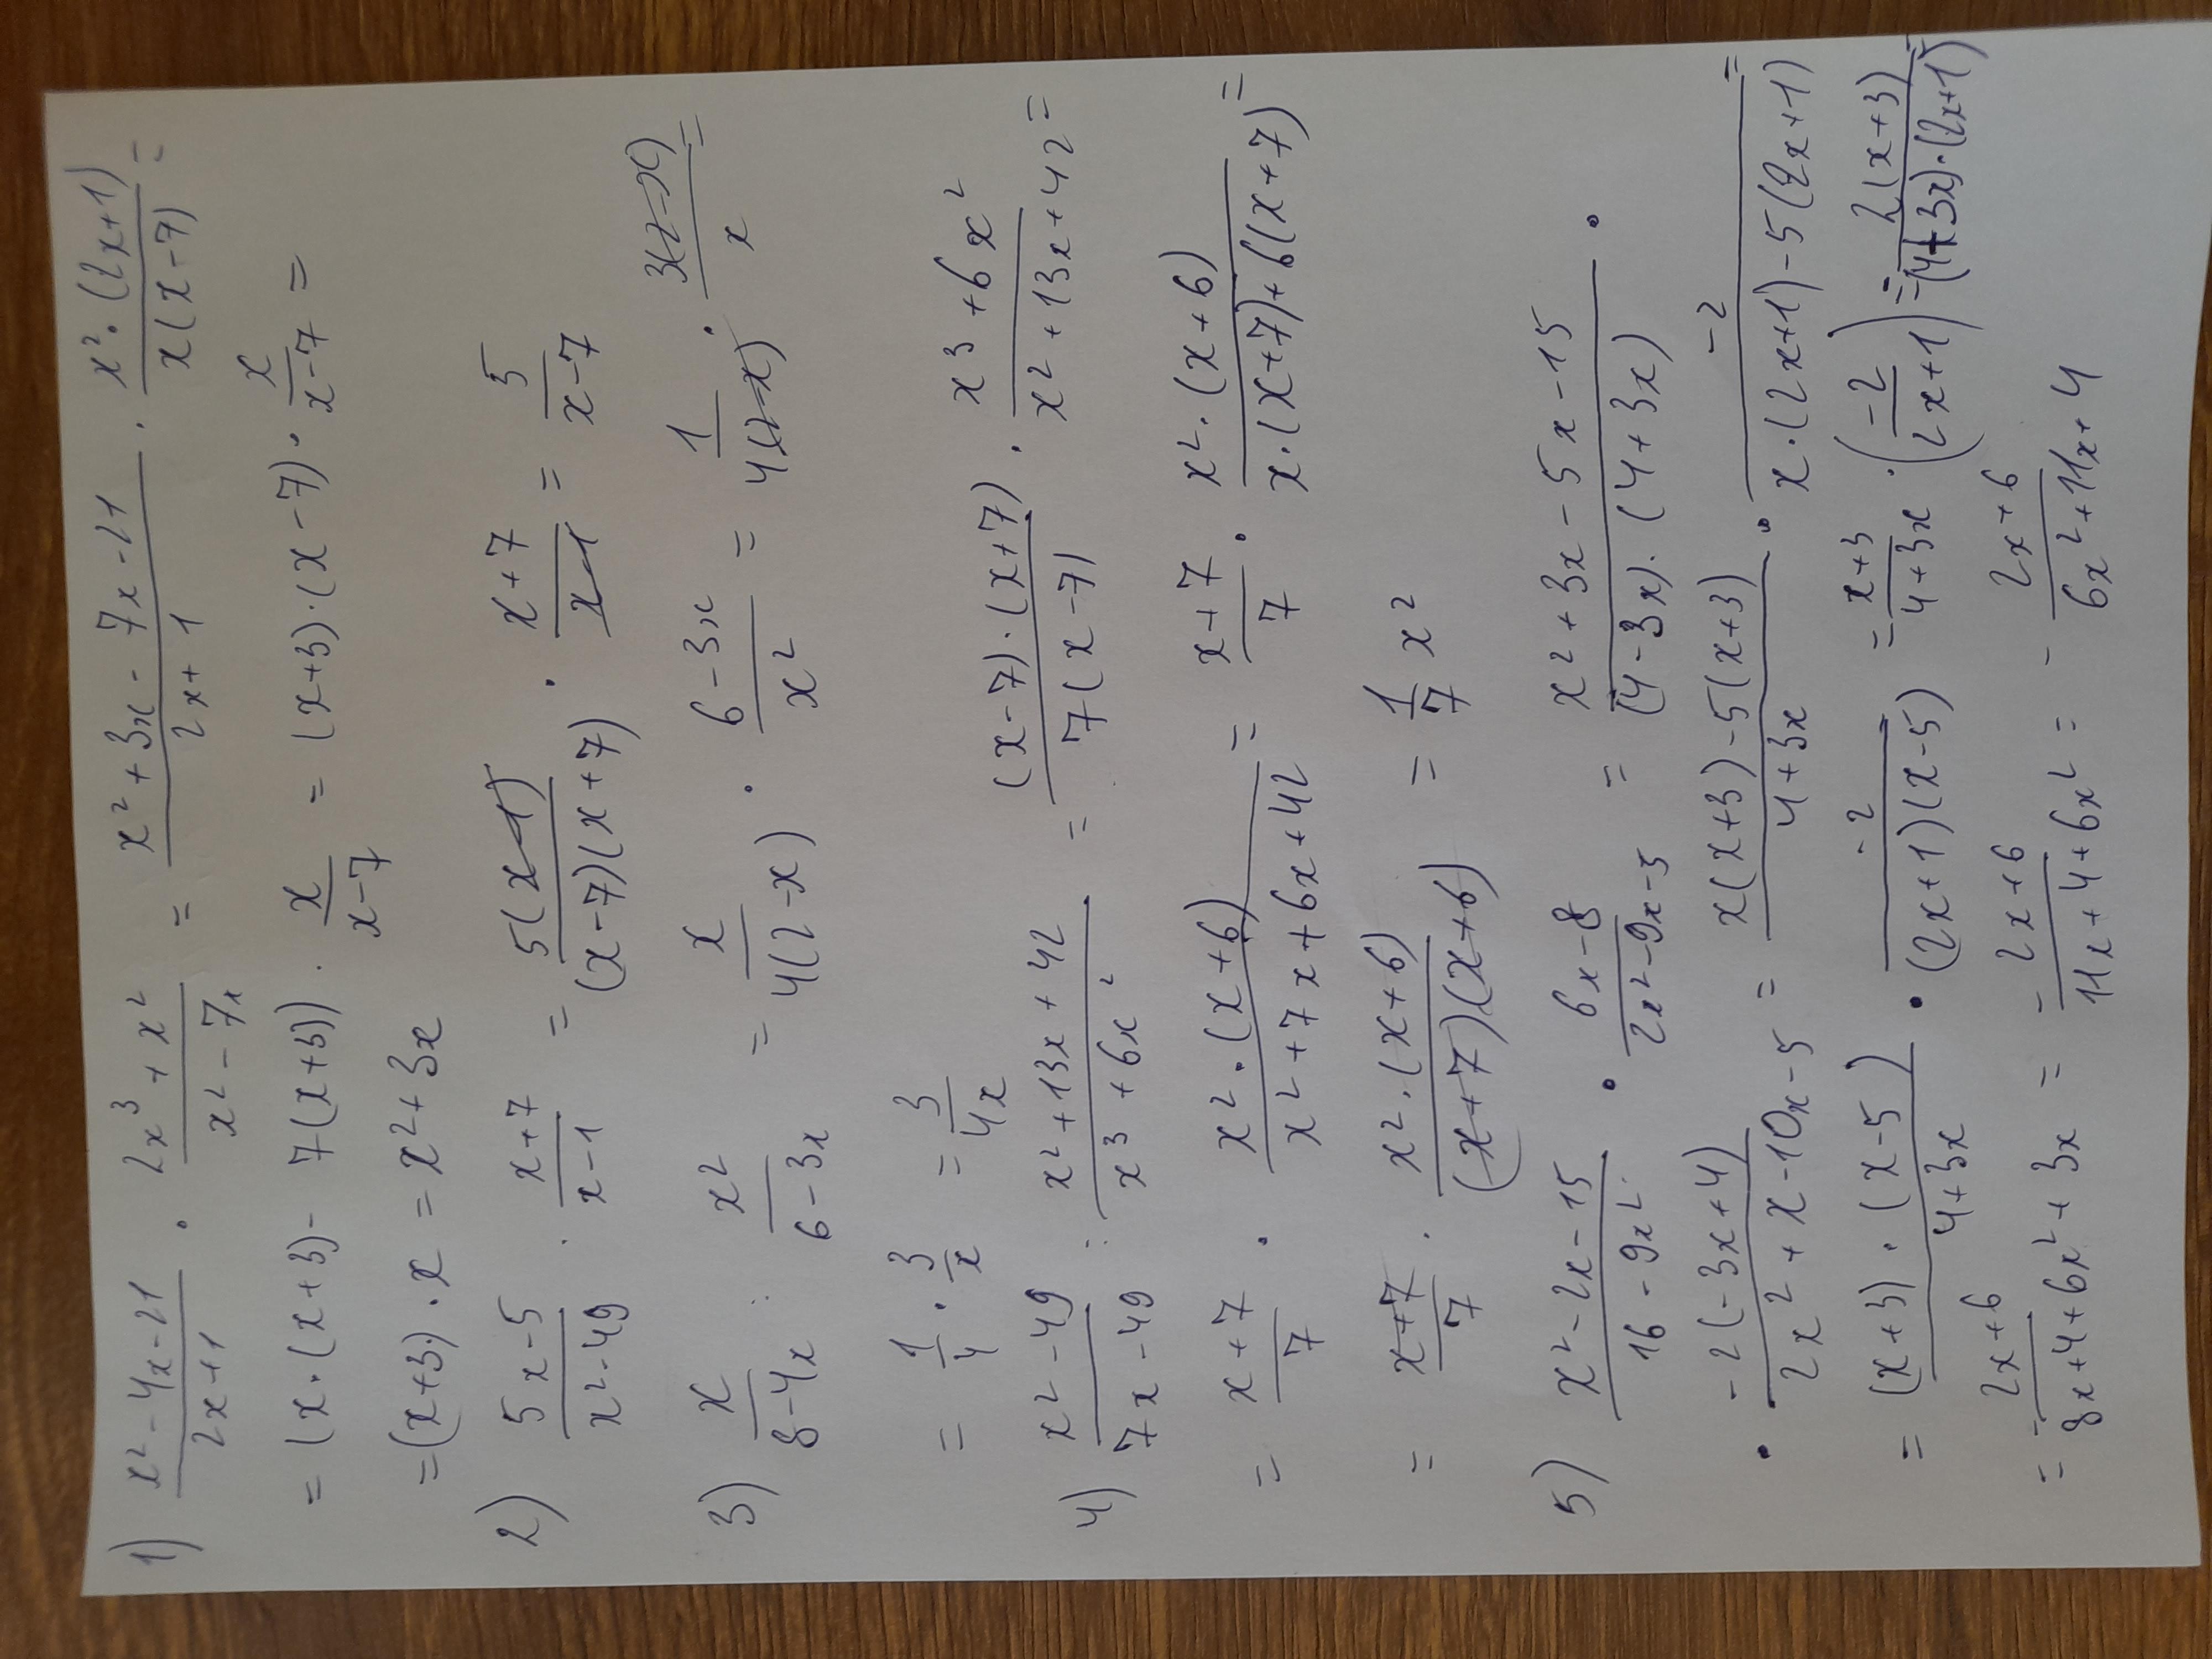 1) (x² - 4x - 21)/(2x + 1) · (2x³ + x²)/(x² - 7x) = (x² + 3x - 7x - 21)/(2x + 1) · (x² · (2x + 1))/(x(x - 7)) =
= (x · (x + 3) - 7(x + 3)) · x/(x - 7) = (x + 3) · (x - 7) · x/(x - 7) =
= (x + 3) · x = x² + 3x
2) (5x - 5)/(x² - 49) · (x + 7)/(x - 1) = 5(x - 1)/((x - 7)(x + 7)) · (x + 7)/(x - 1) = 5/(x - 7)
3) x/(8 - 4x) : x²/(6 - 3x) = x/(4(2 - x)) · (6 - 3x)/x² = 1/(4(2 - x)) · 3(2 - x)/x =
= 1/4 · 3/x = 3/(4x)
4) (x² - 49)/(7x - 49) : (x² + 13x + 42)/(x³ + 6x²) = ((x - 7) · (x + 7))/(7(x - 7)) · (x³ + 6x²)/(x² + 13x + 42) =
= (x + 7)/7 · (x² · (x + 6))/(x² + 7x + 6x + 42) = (x + 7)/7 · (x² · (x + 6))/(x · (x + 7) + 6(x + 7)) =
= (x + 7)/7 · (x² · (x + 6))/((x + 7)(x + 6)) = 1/7 x²
5) (x² - 2x - 15)/(16 - 9x²) · (6x - 8)/(2x² - 9x - 5) = (x² + 3x - 5x - 15)/((4 - 3x) · (4 + 3x)) ·
· -2(-3x + 4)/(2x² + x - 10x - 5) = (x(x + 3) - 5(x + 3))/(4 + 3x) · -2/(x · (2x + 1) - 5(2x + 1)) =
= ((x + 3) · (x - 5))/(4 + 3x) · -2/((2x + 1)(x - 5)) = (x + 3)/(4 + 3x) · (-2/(2x + 1)) = -2(x + 3)/((4 + 3x) · (2x + 1)) =
= -(2x + 6)/(8x + 4 + 6x² + 3x) = -(2x + 6)/(11x + 4 + 6x²) = -(2x + 6)/(6x² + 11x + 4)